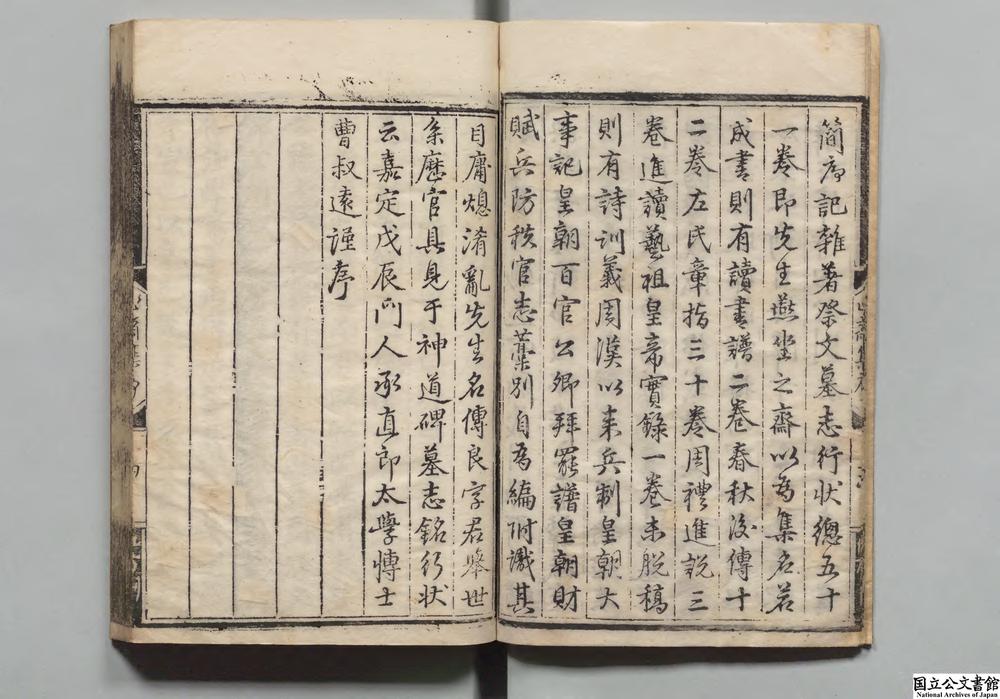 簡序記雜著祭文墓志行狀總五十
一卷即先生燕坐之齋以為集名若
成書則有讀書譜二卷春秋後傳十
二卷左氏章指三十卷周禮進說三
卷進讀藝祖皇帝實錄一卷未脫稿
則有詩訓義周漢以來兵制皇朝大
事記皇朝百官公卿拜罷譜皇朝財
賦兵防秩官志藁別自為編附識其
目庸熄淆亂先生名傳良字君舉世
系歷官具見于神道碑墓志銘行狀
云嘉定戊辰門人承直郎太學博士
曹叔遠謹序
国立公文書館
National Archives of Japan